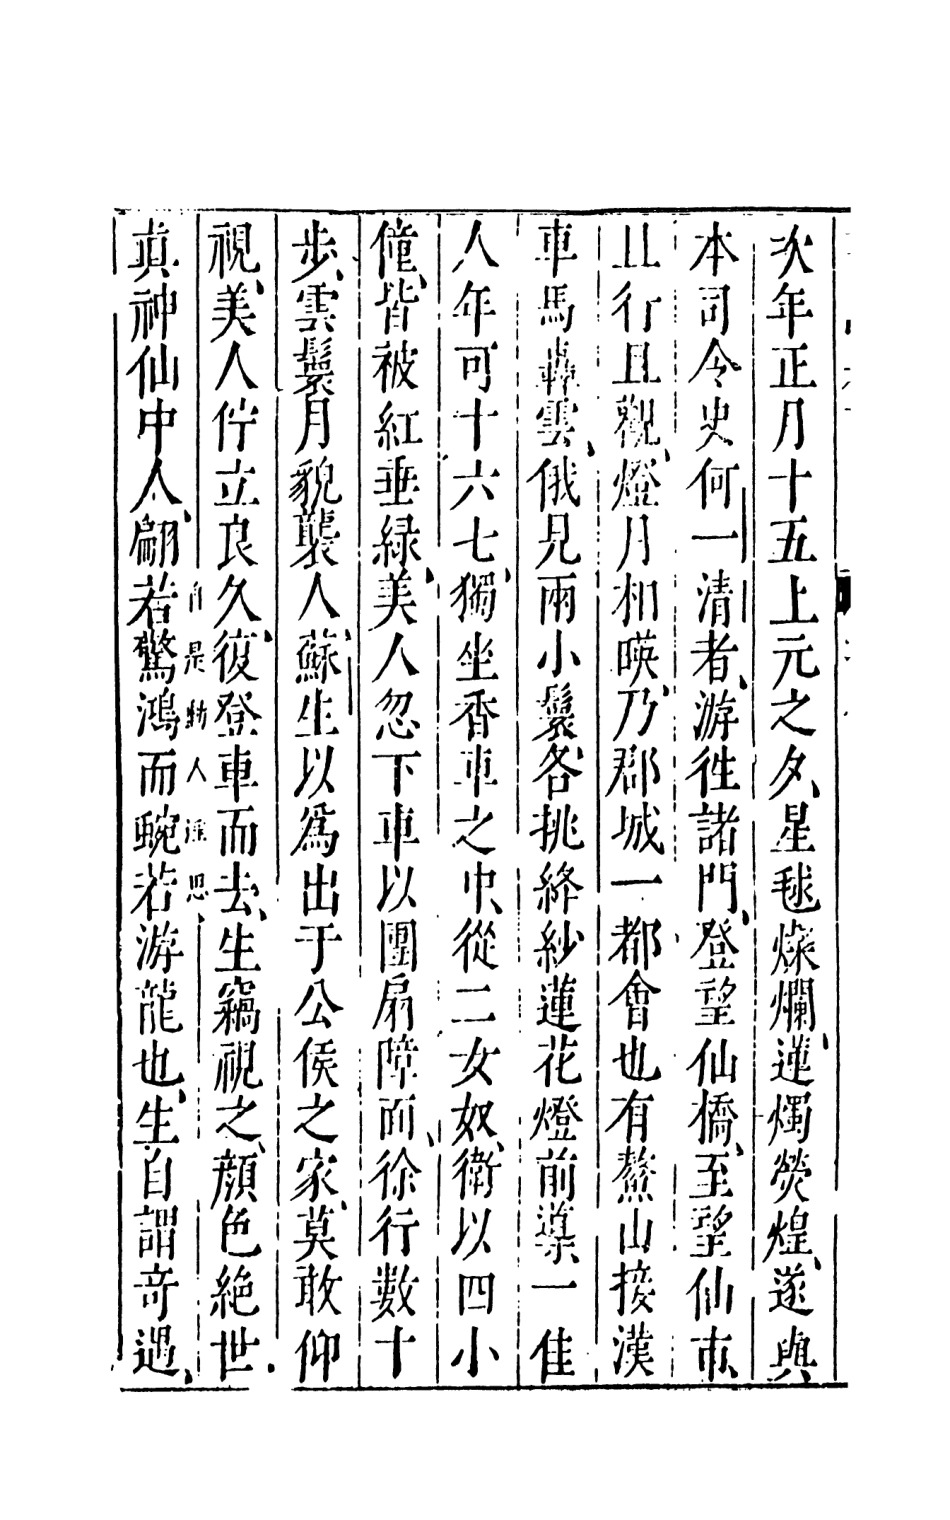 次年正月十五上元之夕、星毬燦爛、蓮燭熒煌、遂與
本司令史何一清者、游徃諸門、登望仙橋、至望仙市、
且行且觀、燈月相暎、乃郡城一都會也有鰲山接漢
車馬轟雲、俄見兩小鬟、各挑絳紗蓮花燈前導、一佳
人年可十六七、獨坐香車之中、從二女奴、衛以四小
僮、皆被紅垂緑、美人忽下車以團扇障面、徐行數十
步、雲鬟月貌襲人、蘇生以爲出于公侯之家、莫敢仰
視、美人佇立良久、復登車而去、生竊視之、顔色絶世
自是動人遐思、
真神仙中人、翩若驚鴻而婉若游龍也、生自謂奇遇、